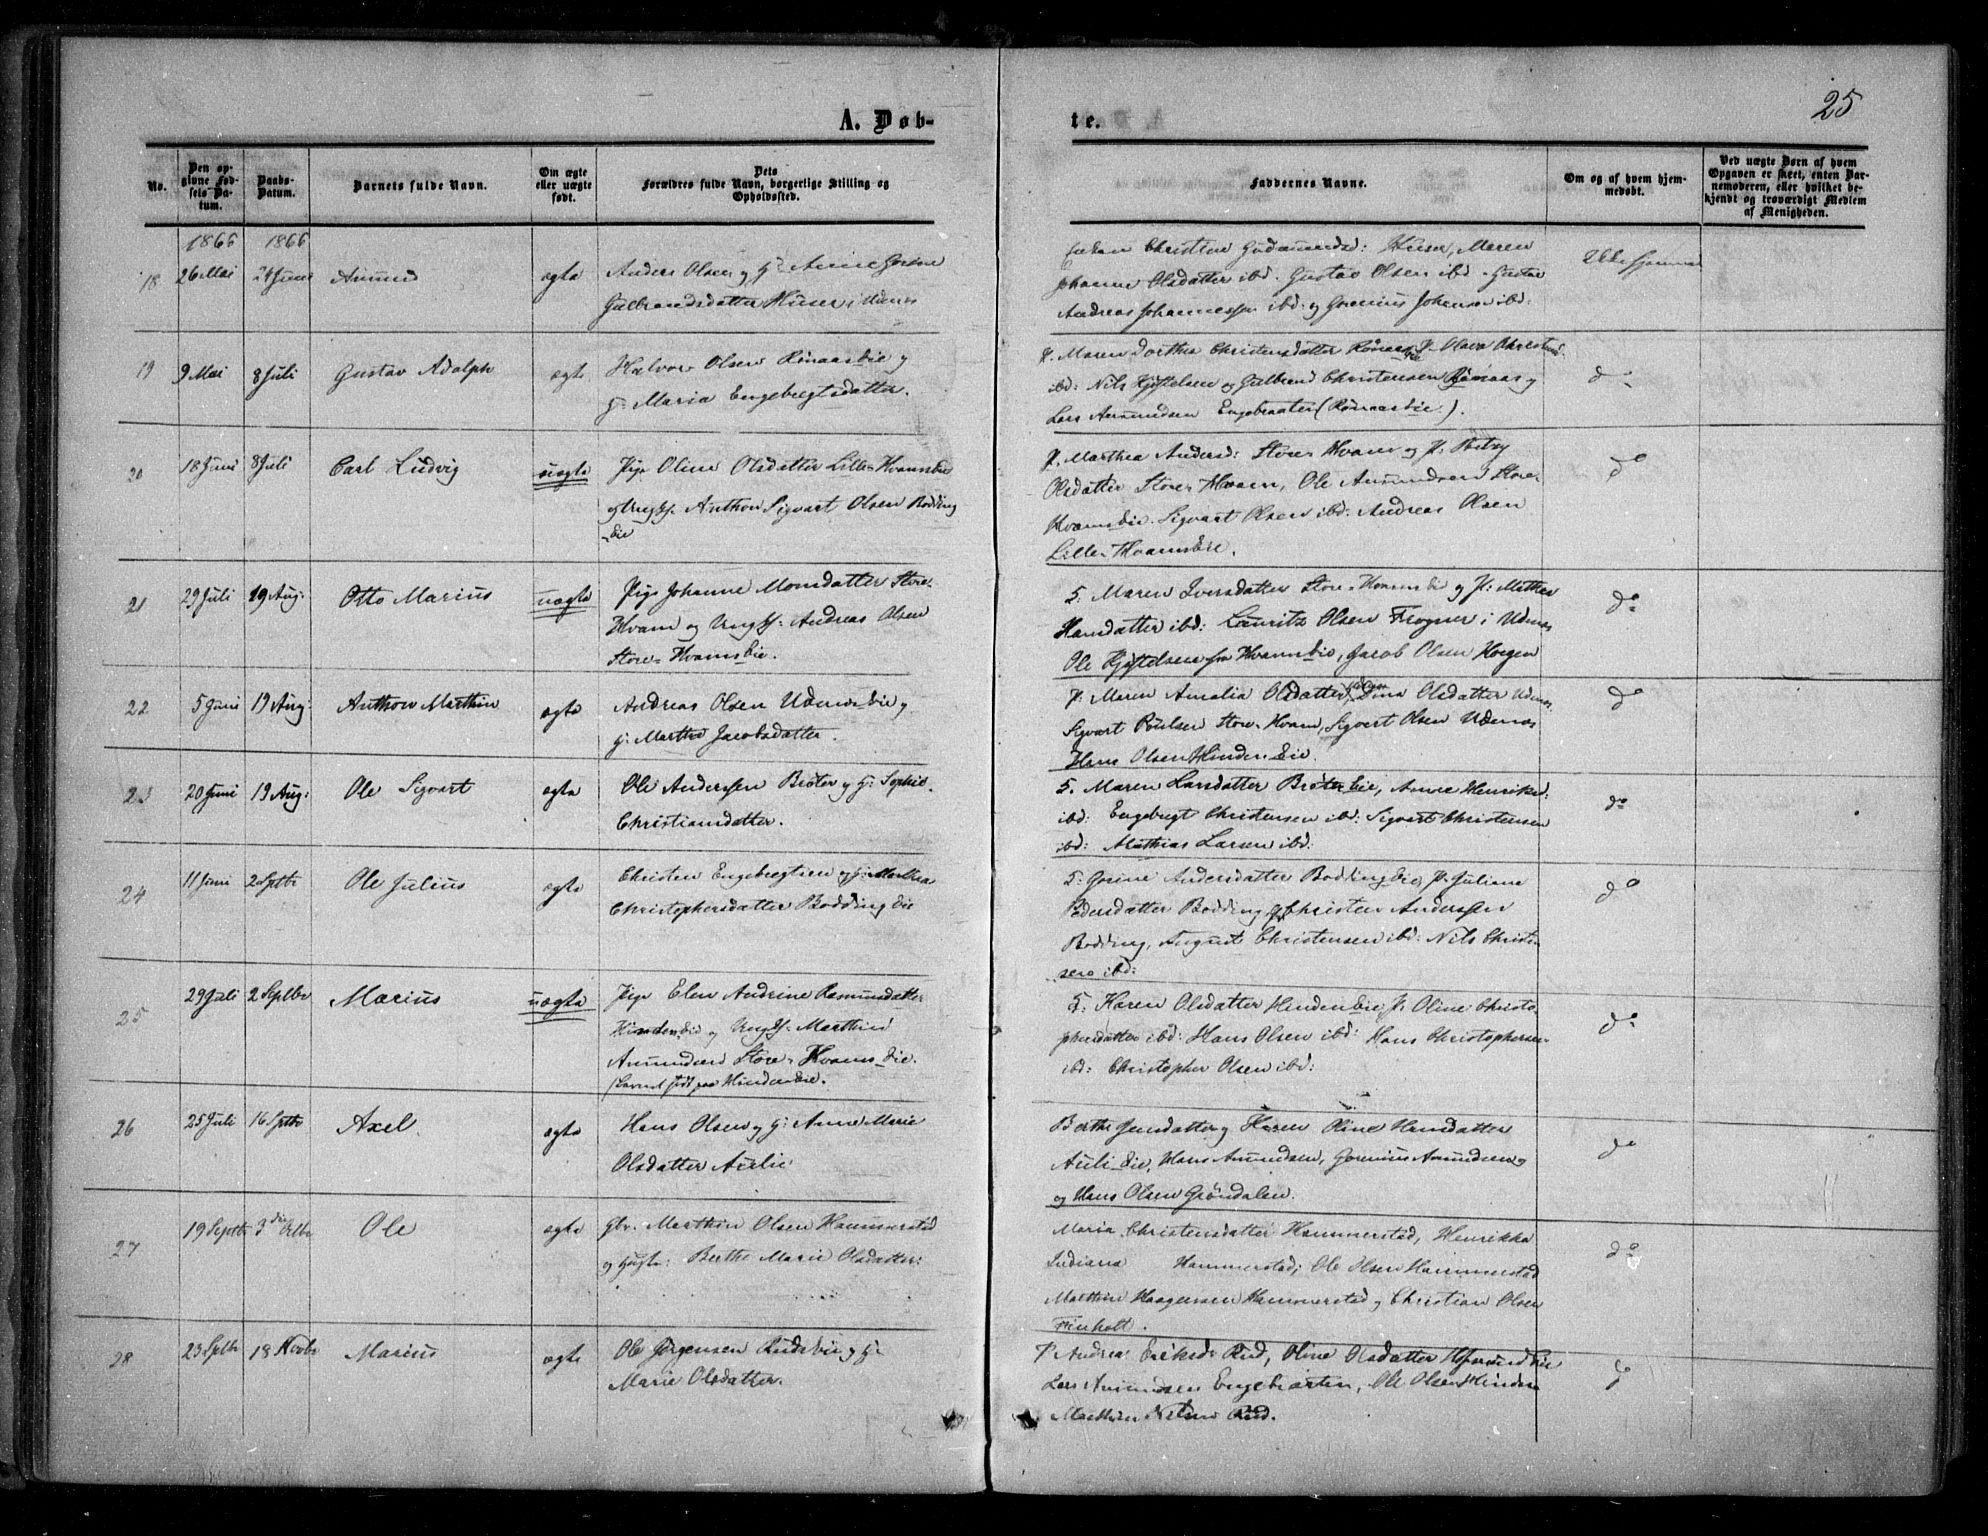 25
A. Døb-
te.
No.
Den op-
givne Fød-
sels Da-
tum.
Daabs-
Datum.
Barnets fulde Navn.
Om ægte
eller uægte
født.
Dets
Forældres fulde Navn, borgerlige Stilling og
Opholdssted.
Faddernes Navne.
Om og af hvem hjem-
medøbt.
Ved uægte Børn af hvem
Opgaven er skeet, enten Bar-
nemoderen, eller hvilket be-
kjendt og troværdigt Medlem
af Menigheden.
1866 1866
18 26 Mai 24 Juni Amund ægte
Anders Olsen og H:
Gulbrandsdatter Huser i Udnæs
Christine Gudmundsd: Huser, Maren
Johanne Olsdatter ibd. Gustav Olsen ibd. Gustav
Andreas Johannessen ibd: og Gorenius Johansen ibd:
Ikke hjemme
19 9 Mai 8 Juli Gustav Adolph ægte
Halvor Olsen Rønaaseie og
H: Maria Engebregtsdatter.
P. Maren Dorthea Christensdatter P. Olava
ibd: Nils Kjøstelsen og Gulbrand Christensen Rønaas og
Lars Amundsen Engebraaten (Rønaaseie).
do
20 18 Juni 8 Juli Carl Ludvig uægte
Pige Oline Olsdatter Lille-Hvamseie
og Ungk. Anthon Sigvart Olsen Bodding
-eie
P. Marthea Andersd: Store Hvam og P. Betsy
Olsdatter Store Hvam, Ole Amundsen Store
Hvamseie. Sigvart Olsen ibd. Andreas Olsen
Lille-Hvamseie.
do
21 29 Juli 19 Aug: Otto Marius uægte
Pige Johanne Monsdatter Store
Hvam og Ungk: Andreas Olsen
Store-Hvamseie.
G. Maren Iversdatter Store-Hvamseie og P: Mathea
Hansdatter ibd: Lauritz Olsen Frogner i Udnæs
Ole Kjøstelsen fra Hvamseie, Jacob Olsen Horgen
do
22 5 Juni 19 Aug: Anthon Marthin ægte
Andreas Olsen Udnæseie og
H: Marthe Jacobsdatter.
P: Maren Amalia Olsdatter, Dina Olsdatter Udnæs
Sigvart Poulsen Store-Hvam, Sigvart Olsen Udnæs
Hans Olsen Hinden-Eie
do
23 20 Juni 19 Aug: Ole Sigvart ægte
Ole Anderssen Brøter og H: Sophie
Christiansdatter.
G. Maren Larsdatter Brøtereie, Anne Henriksd:
ibd: Engebregt Christensen ibd: Sigvart Christensen
ibd: Mathias Larsen ibd:
do
24 11 Juni 2 Septbr Ole Julius ægte
Christen Engebregtsen og H: Marthea
Christophersdatter Boddingeie
G: Gorine Andersdatter Boddingeie, P. Juliane
Pedersdatter Bodding, Christen Anderssen
Bodding, August Christensen ibd: Nils Christen
sen ibd:
do
25 29 Juli 2 Septbr Marius uægte
Pige Elen Andrine Rasmusdatter
Hindeneie og Ungk: Marthin
Amundsen Store-Hvamseie.
(Barnet født paa Hindeneie.
G. Karen Olsdatter Hindeneie, P. Oline Christo
phersdatter ibd: Hans Olsen ibd: Hans Christophersen
ibd: Christopher Olsen ibd:
do
26 25 Juli 16 Septbr Axel ægte
Hans Olsen og H: Anne Marie
Olsdatter Aulie
Berthe Jensdatter og Karen Oline Hansdatter
Aulieie, Hans Amundsen, Gorenius Amundsen og
og Hans Olsen Grøndalen.
do
27 19 Septbr 3die Octbr Ole ægte
Gbr. Marthin Olsen Hammerstad
og Hustr: Berthe Marie Olsdatter:
Maria Christensdatter Hammerstad, Henrikka
Indiana Hammerstad, Ole Olsen Hammerstad
Marthin Haagensen Hammerstad og Christian Olsen
Finholt.
do
28 23 Septbr 18 Novbr Marius ægte
Ole Jørgensen Rudseie og H:
Marie Olsdatter.
P. Andrea Eriksd. Rud, Oline Olsdatter
Lars Amundsen Engebraaten, Ole Olsen Hinden
Marthin Nilsen Rud.